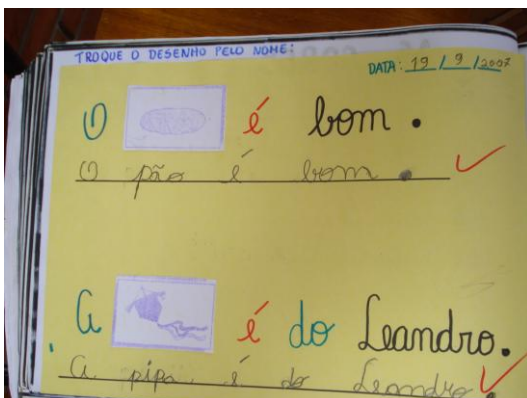 TROQUE O DESENHO PELO NOME:
DATA: 19 / 9 / 2007
O é bom.
O pão é bom.
A é do Leandro.
A pipa é do Leandro.